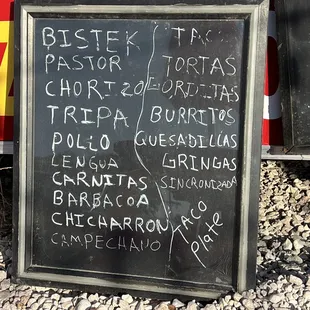 BISTEK
PASTOR
CHORIZO
TRIPA
POLLO
LENGUA
CARNITAS
BARBACOA
CHICHARRON
CAMPECHANO
TORTAS
GORDITAS
BURRITOS
QUESADILLAS
GRINGAS
SINCRONIZADA
TACO
Plate